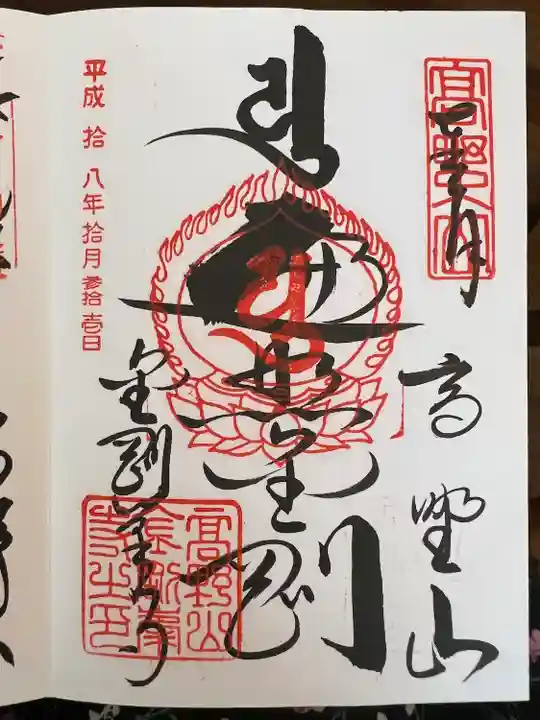 高野山
高野山
遍照金剛
金剛峯寺
高野山
金剛峯
寺之印
平成拾八年拾月参拾壱日